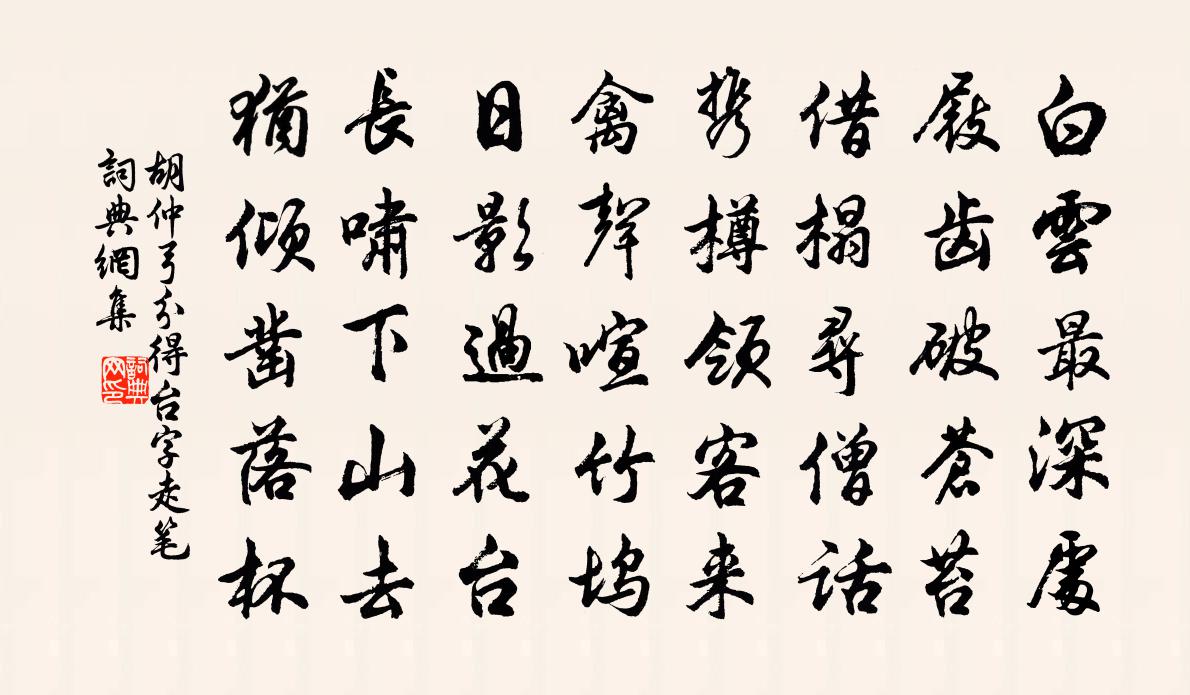 白雲最深處
屐齿破蒼苔
借榻尋僧話
携樽領客来
禽聲喧竹塢
日影過花台
長嘯下山去
猶傾凿落杯
胡仲弓分得台字走笔
詞典網集
詞典网印